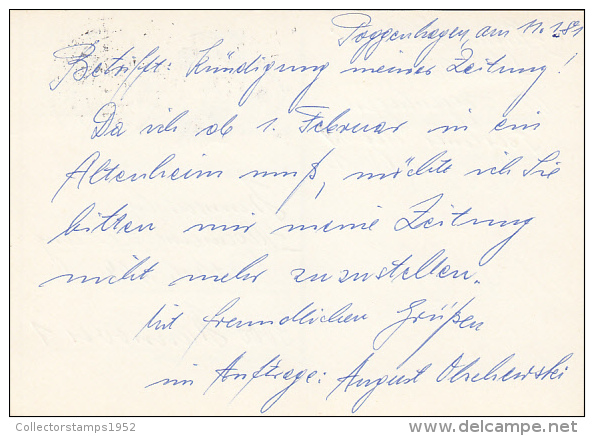 Poggenhagen, am 11.1.81
Betrifft: Kündigung meiner Zeitung!
Da ich ab 1. Februar in ein
Altenheim muß, möchte ich Sie
bitten mir meine Zeitung
nicht mehr zuzustellen.
Mit freundlichen Grüßen
im Auftrage: August Olschewski
Collectorstamps1952
delcampe.net